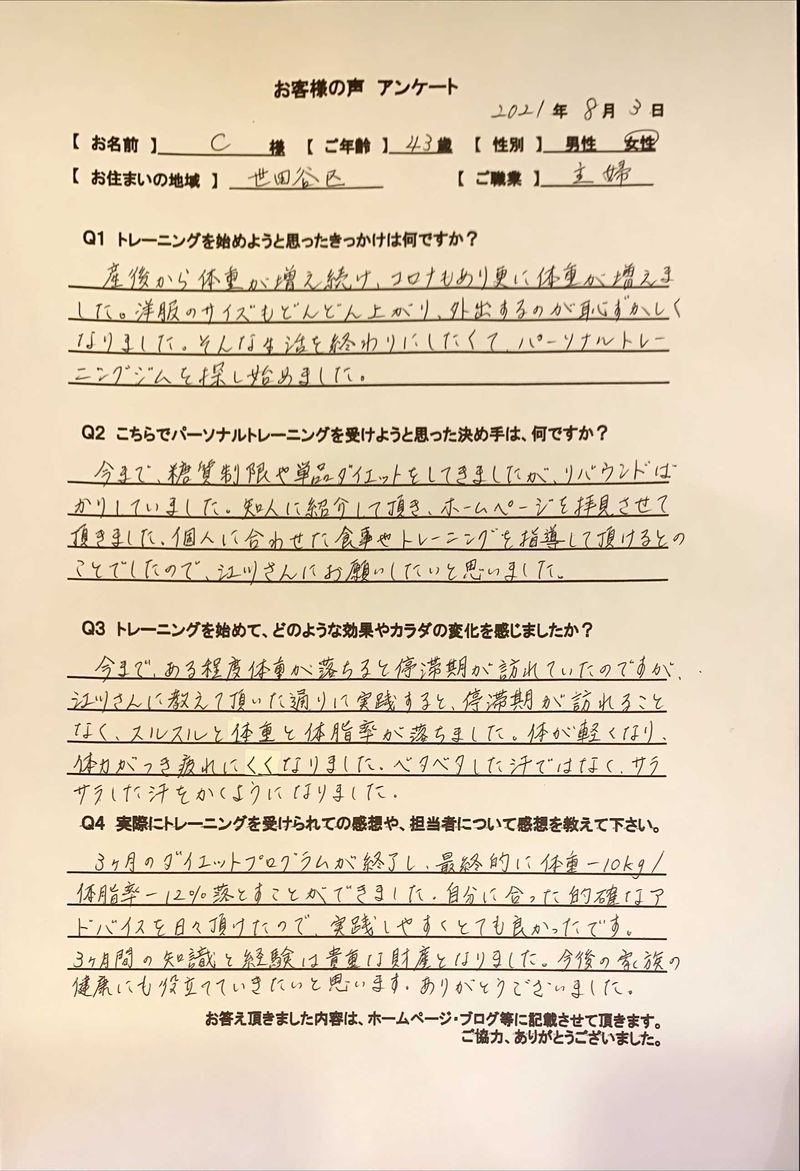 お客様の声 アンケート
2021年 8月 3日
【 お名前 】 C 様 【 ご年齢 】 43歳 【 性別 】 男性 女性
【 お住まいの地域 】 世田谷区 【 ご職業 】 主婦
Q1 トレーニングを始めようと思ったきっかけは何ですか？
産後から体重が増え続け、コロナもあり更に体重が増えま
した。洋服のサイズもどんどん上がり、外出するのが恥ずかしく
なりました。そんな生活を終わりにしたくて、パーソナルトレー
ニングジムを探し始めました。
Q2 こちらでパーソナルトレーニングを受けようと思った決め手は、何ですか？
今まで、糖質制限や単品ダイエットをしてきましたが、リバウンドば
かりしていました。知人に紹介して頂き、ホームページを拝見させて
頂きました。個人に合わせた食事やトレーニングを指導して頂けるとの
ことでしたので、江川さんにお願いしたいと思いました。
Q3 トレーニングを始めて、どのような効果やカラダの変化を感じましたか？
今まで、ある程度体重が落ちると停滞期が訪れていたのですが、
江川さんに教えて頂いた通りに実践すると、停滞期が訪れること
なく、スルスルと体重と体脂率が落ちました。体が軽くなり、
体力がつき疲れにくくなりました。ベタベタした汗ではなく、サラ
サラした汗をかくようになりました。
Q4 実際にトレーニングを受けられての感想や、担当者について感想を教えて下さい。
3ヶ月のダイエットプログラムが終了し、最終的に体重－10kg/
体脂率－12%落とすことができました。自分に合った的確なア
ドバイスを日々頂けたので、実践しやすくとても良かったです。
3ヶ月間の知識と経験は貴重な財産となりました。今後の家族の
健康にも役立てていきたいと思います。ありがとうございました。
お答え頂きました内容は、ホームページ・ブログ等に記載させて頂きます。
ご協力、ありがとうございました。